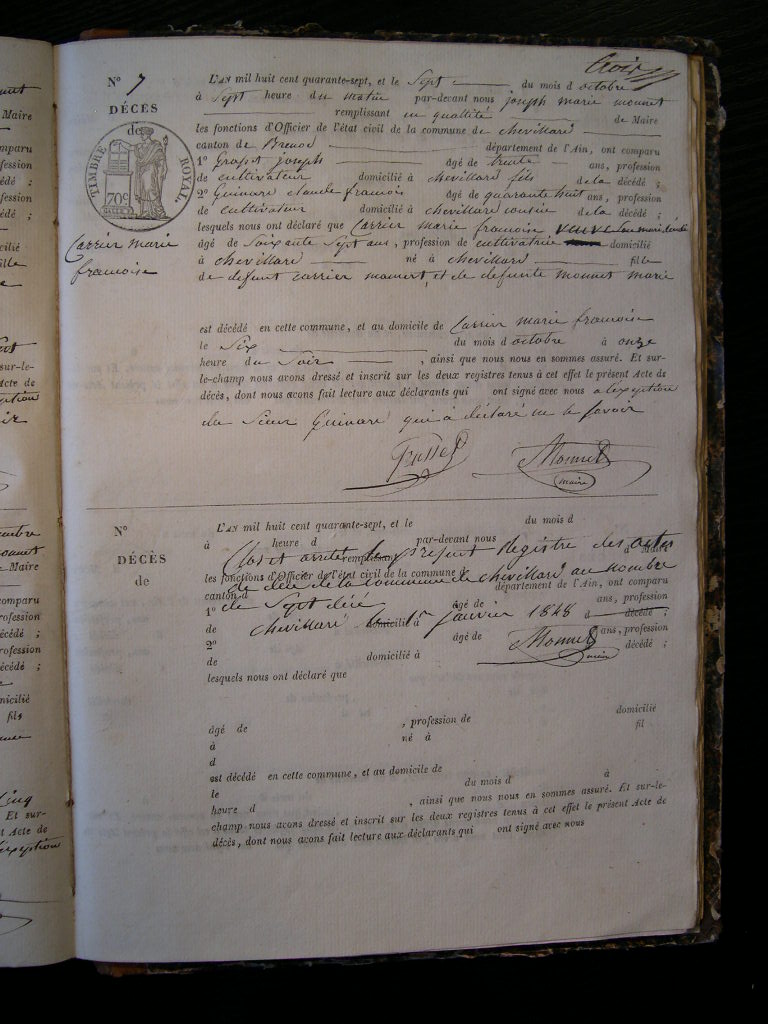 N° 7
DÉCÈS
de
TIMBRE ROYAL.
70c
Carrier marie
francoise
L'AN mil huit cent quarante-sept, et le Sept du mois d octobre
à Sept heure du matin par-devant nous joseph marie monnet
remplissant en qualité de Maire
les fonctions d'Officier de l'état civil de la commune de chevillard
canton de Brenod département de l'Ain, ont comparu
1° joseph âgé de trente ans, profession
de cultivateur domicilié à chevillard fils de la décédé ;
2° Guinard claude francois âgé de quarante huit ans, profession
de cultivateur domicilié à chevillard cousin de la décédé ;
lesquels nous ont déclaré que Carrier marie francoise veuve
âgé de Soixante Sept ans, profession de cultivatrice domicilié
à chevillard né à chevillard fille
de defunt carrier et de defunte monnet marie
est décédé en cette commune, et au domicile de Carrier marie francoise
le Six du mois d octobre à onze
heure du Soir , ainsi que nous nous en sommes assuré. Et sur-
le-champ nous avons dressé et inscrit sur les deux registres tenus à cet effet le présent Acte de
décès, dont nous avons fait lecture aux déclarants qui ont signé avec nous a lexception
du Sieur Guinard qui à déclaré ne le savoir
Monnet
maire
N°
DÉCÈS
de
L'AN mil huit cent quarante-sept, et le du mois d
à heure d par-devant nous
Clos et arrêté le présent Registre des actes
remplissant de Maire
les fonctions d'Officier de l'état civil de la commune d
de de la commune de chevillard au nombre
canton d département de l'Ain, ont comparu
de Sept
1° âgé de ans, profession
chevillard 1er janvier 1848
de domicilié à d décédé ;
2° âgé de ans, profession
Monnet
maire
de domicilié à décédé ;
lesquels nous ont déclaré que
âgé de , profession de domicilié
à né à fil
d
est décédé en cette commune, et au domicile de
le du mois d à
heure d , ainsi que nous nous en sommes assuré. Et sur-le-
champ nous avons dressé et inscrit sur les deux registres tenus à cet effet le présent Acte de
décès, dont nous avons fait lecture aux déclarants qui ont signé avec nous